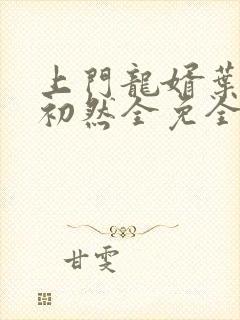 上門龍婿葉
初然全免全
甘雯